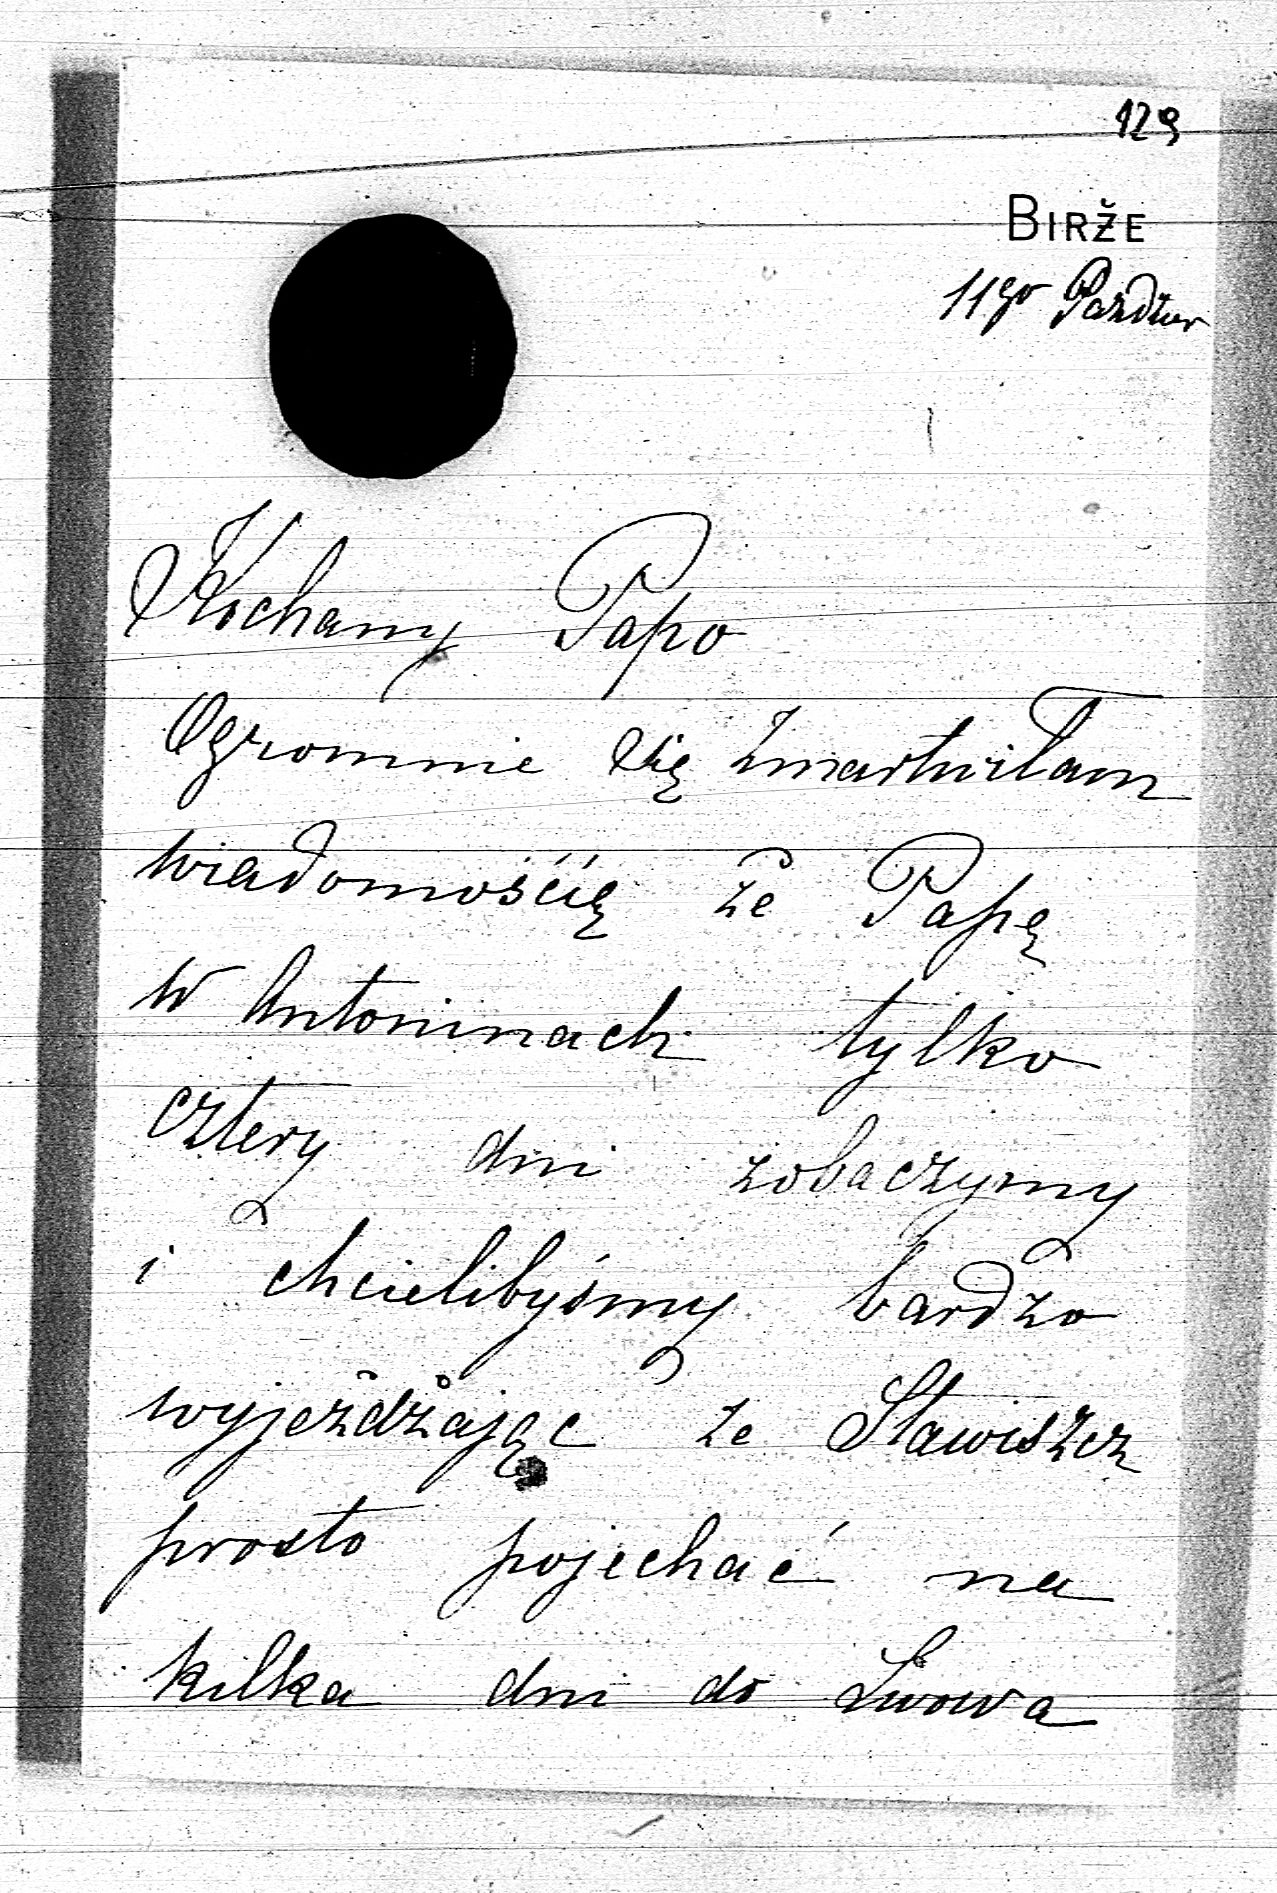 129
BIRŽE
11go Paździer
Kochany Papo
Ogromnie się zmartwiłam
wiadomością że Papę
w Antoninach tylko
cztery dni zobaczymy
i chcielibyśmy bardzo
wyjeżdżając ze Stawiszcz
prosto pojechać na
kilka dni do Lwowa